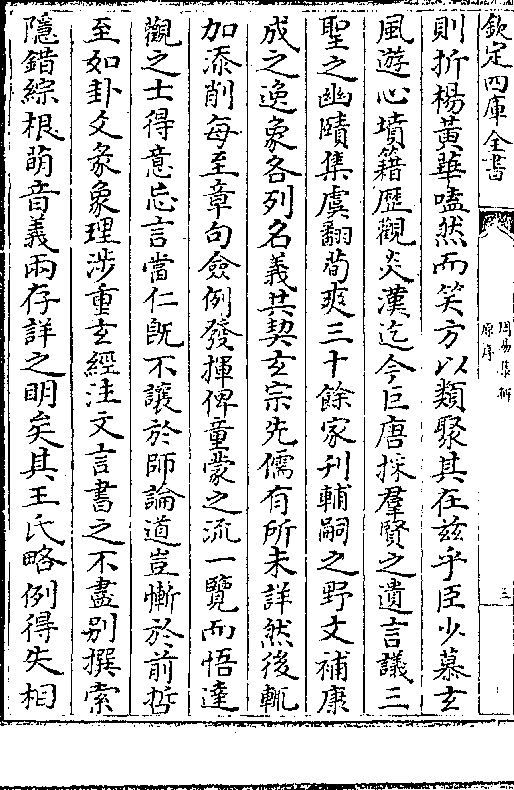 欽定四庫全書
周易集解
原序
三
則折楊黃華嗑然而笑方以類聚其在兹乎臣少慕玄
風遊心墳籍歴觀炎漢迄今巨唐採羣賢之遺言議三
聖之幽賾集虞翻荀爽三十餘家刋輔嗣之野文補康
成之逸象各列名義共契玄宗先儒有所未詳然後輒
加添削每至章句僉例發揮俾童蒙之流一覽而悟達
觀之士得意忘言當仁旣不讓於師論道豈慚於前哲
至如卦爻彖象理涉重玄經注文言書之不盡别撰索
隱錯綜根萌音義兩存詳之明矣其王氏略例得失相